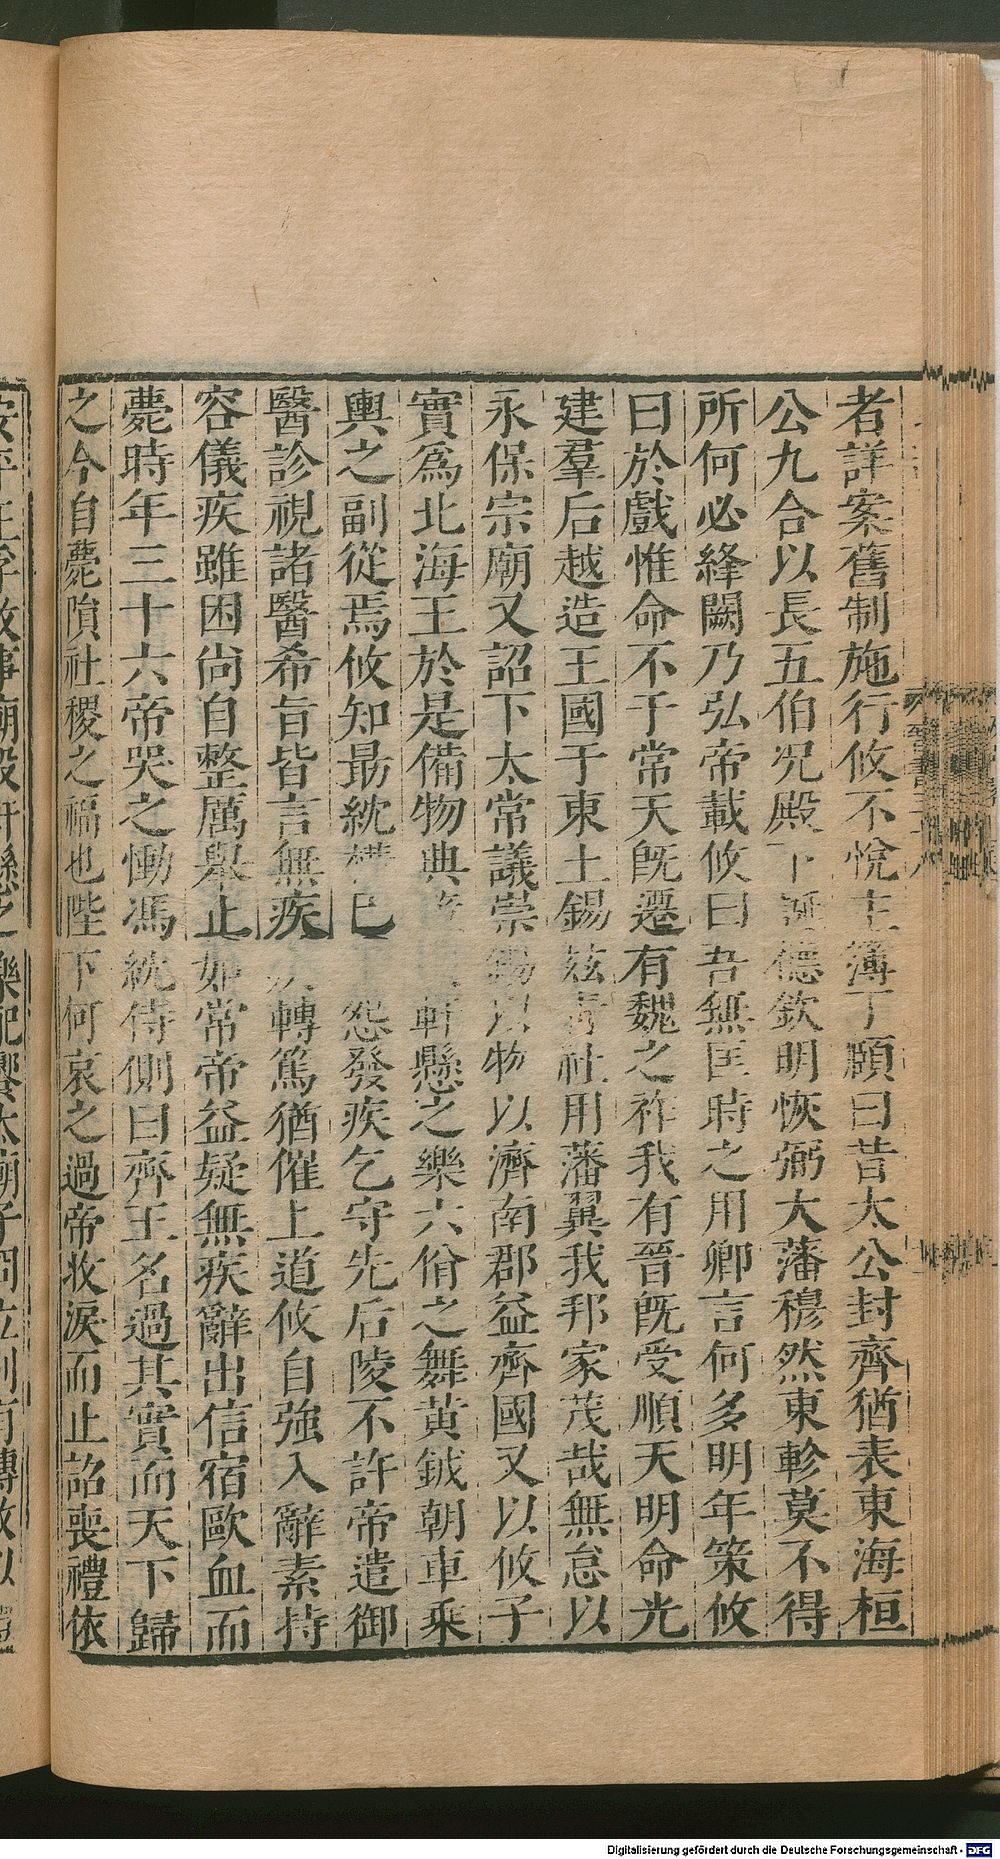 者詳案舊制施行攸不悅主簿丁頤曰昔太公封齊猶表東海桓
公九合以長五伯况殿下誕德欽明恢弼大藩穆然東軫莫不得
所何必絳闕乃弘帝載攸曰吾無匡時之用卿言何多明年策攸
曰於戲惟命不于常天旣遷有魏之祚我有晉旣受順天明命光
建羣后越造王國于東土錫玆靑社用藩翼我邦家茂哉無怠以
永保宗廟又詔下太常議崇錫以物以濟南郡益齊國又以攸子
實爲北海王於是備物典 軒懸之樂六佾之舞黄鉞朝車乘
輿之副從焉攸知勗紞構已 怨發疾乞守先后陵不許帝遣御
醫診視諸醫希旨皆言無疾 轉篤猶催上道攸自強入辭素持
容儀疾雖困尙自整厲舉止如常帝益疑無疾辭出信宿歐血而
薨時年三十六帝哭之慟馮紞侍側曰齊王名過其實而天下歸
之今自薨隕社稷之福也陛下何哀之過帝收淚而止詔喪禮依
安平王孚故事廟設軒懸之樂配饗太廟子冏立別有傳攸以
Digitalisierung gefördert durch die Deutsche Forschungsgemeinschaft - DFG